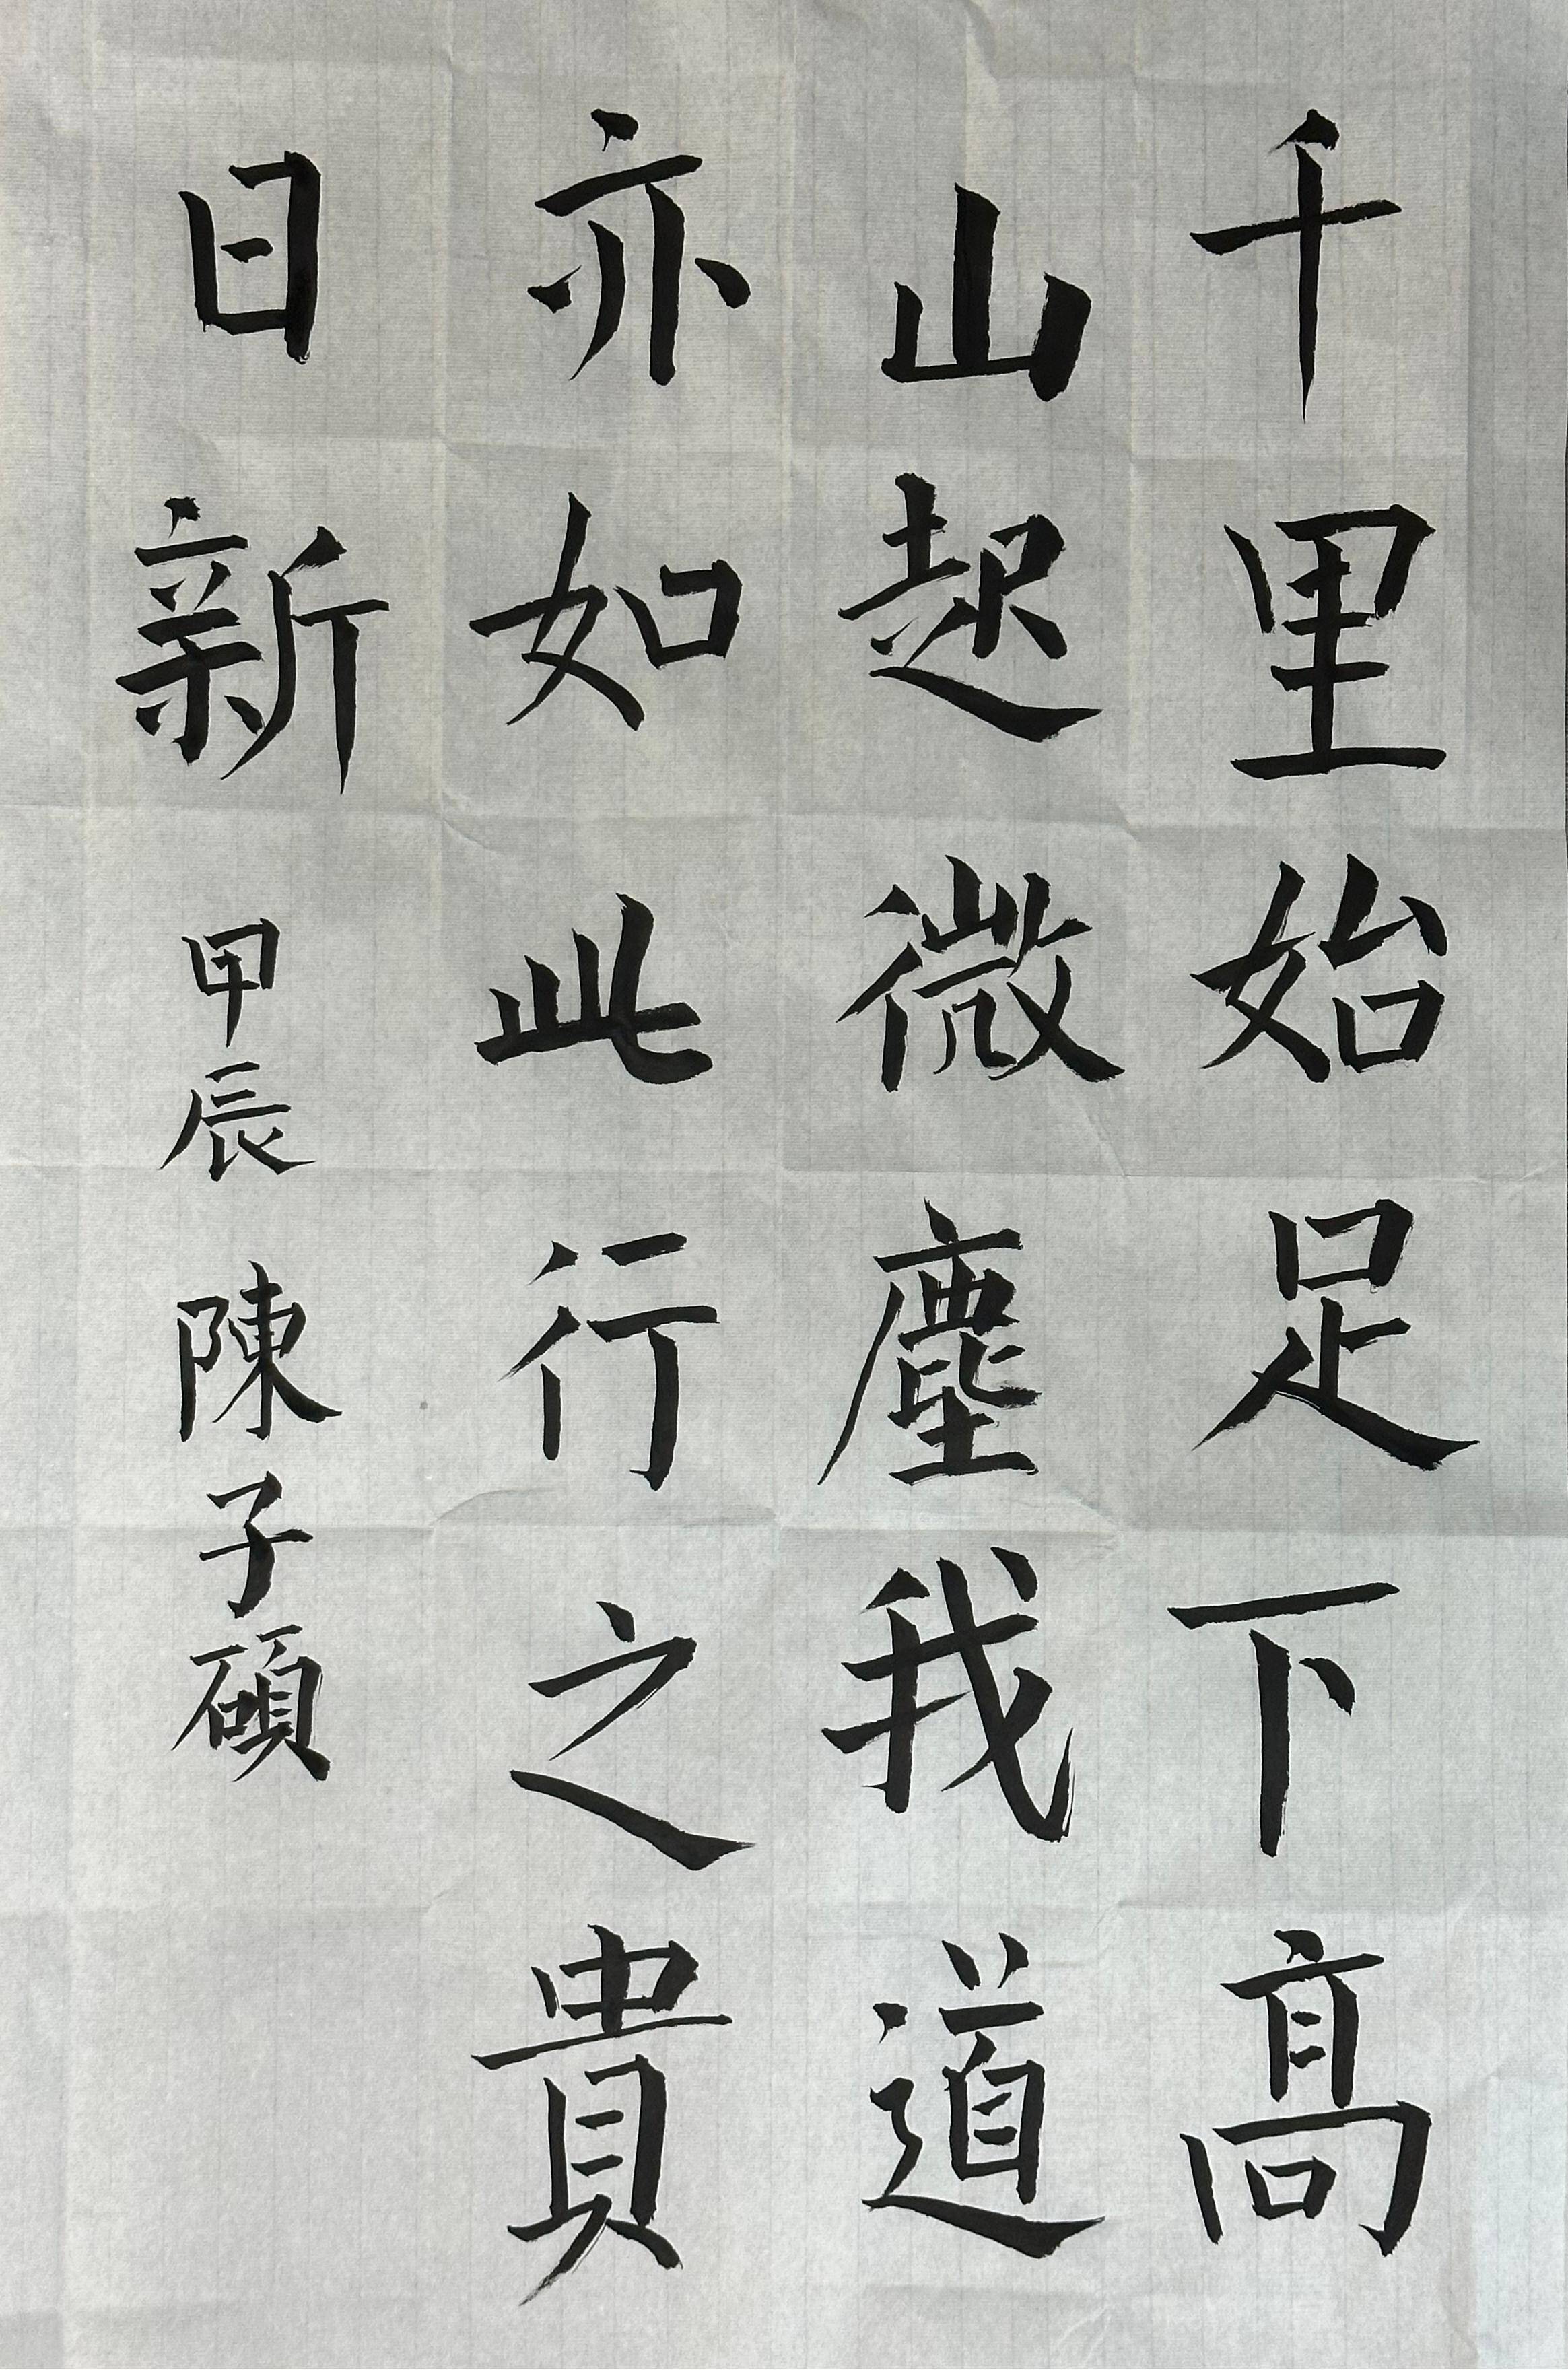 千里始足下髙
山起微塵我道
亦如此行之貴
日新 甲辰 陳子碩